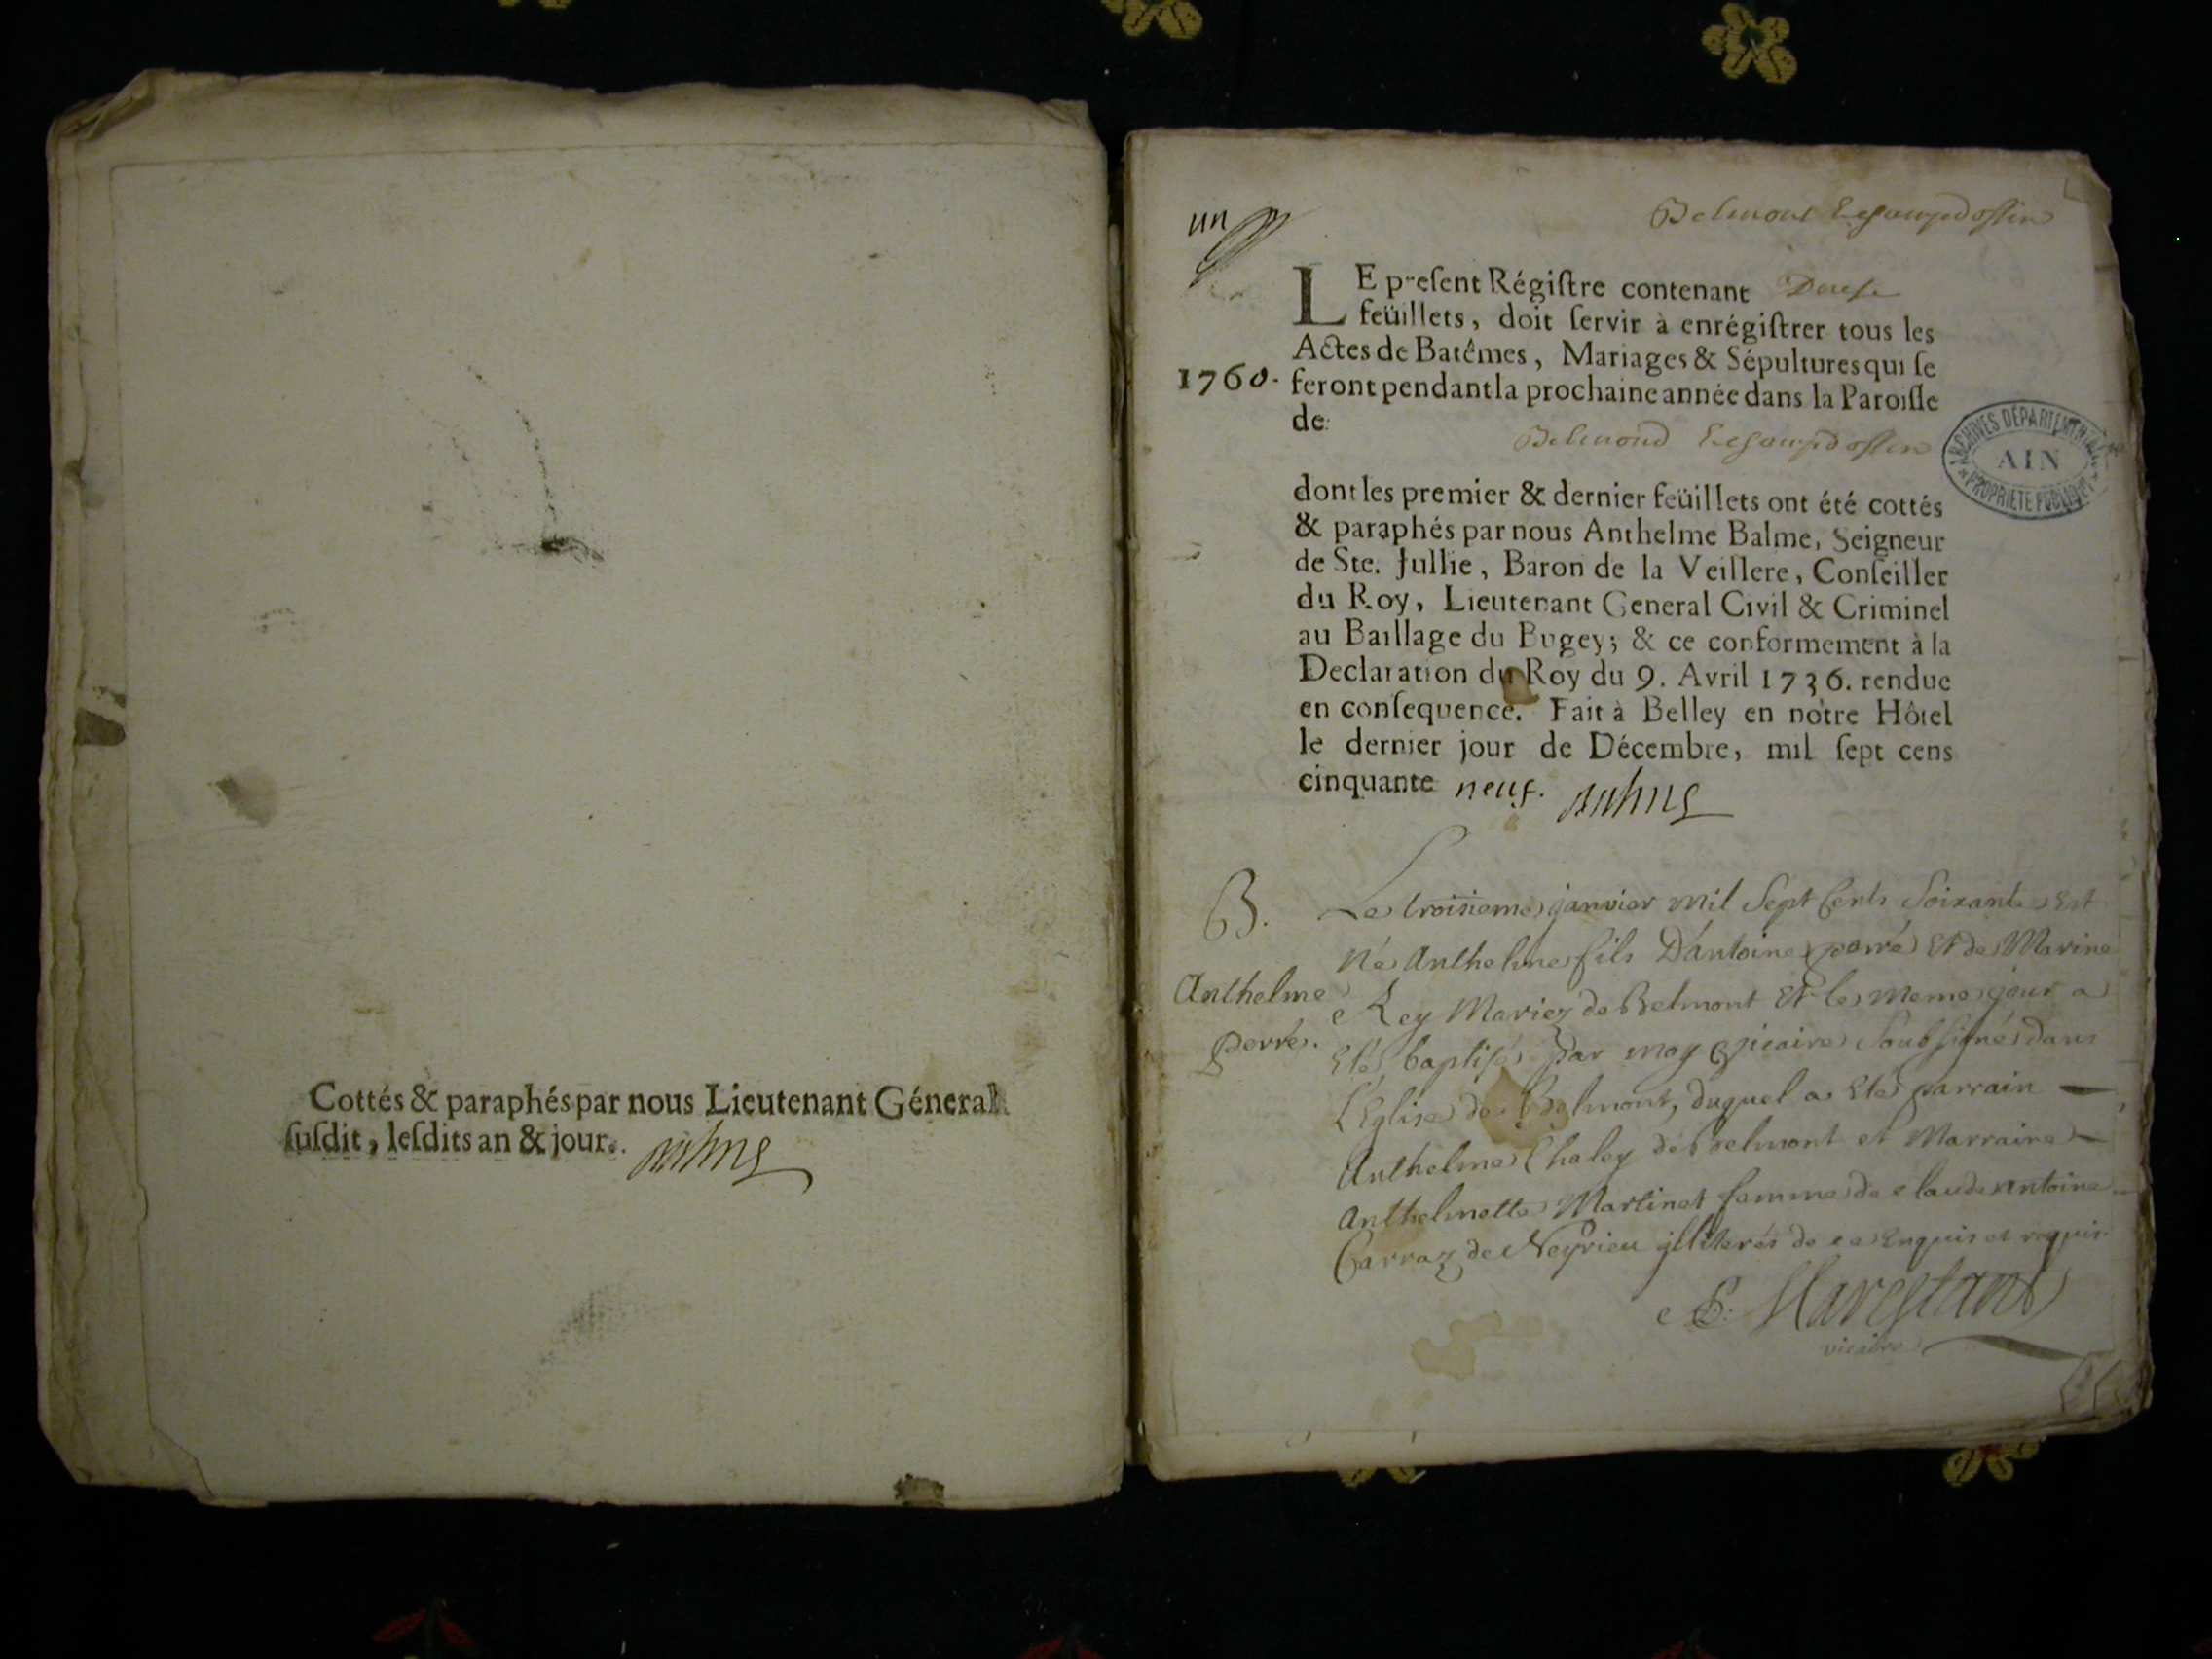 Cottés & paraphés par nous Lieutenant Géneral
ſuſdit, leſdits an & jour.
un
Belmont
LE preſent Régiſtre contenant
feüillets, doit ſervir à enrégiſtrer tous les
Actes de Batêmes, Mariages & Sépultures qui ſe
1760. feront pendant la prochaine année dans la Paroiſſe
de
Belmond
ARCHIVES DÉPARTEMENTALES
AIN
PROPRIÉTÉ PUBLIQUE
dont les premier & dernier feüillets ont été cottés
& paraphés par nous Anthelme Balme, Seigneur
de Ste. Jullie, Baron de la Veillere, Conſeiller
du Roy, Lieutenant General Civil & Criminel
au Baillage du Bugey; & ce conformement à la
Declaration du Roy du 9. Avril 1736. rendue
en conſequence. Fait à Belley en nôtre Hôtel
le dernier jour de Décembre, mil ſept cens
cinquante neuf.
B.
Anthelme
perré.
Le troisieme janvier mil Sept Cents Soixante Est
né Anthelme fils D'antoine perré Et de Marine
Rey Mariez de Belmont Et le meme jour a
Eté baptisé par moy vicaire Soubsigné dans
L'Eglise de Belmont, duquel a Eté parrain
Anthelme Chaley de Belmont et Marraine
Anthelmette Martinet femme de claude antoine
Carraz de Neyrieu illiterés de ce Enquis et requis
vicaire